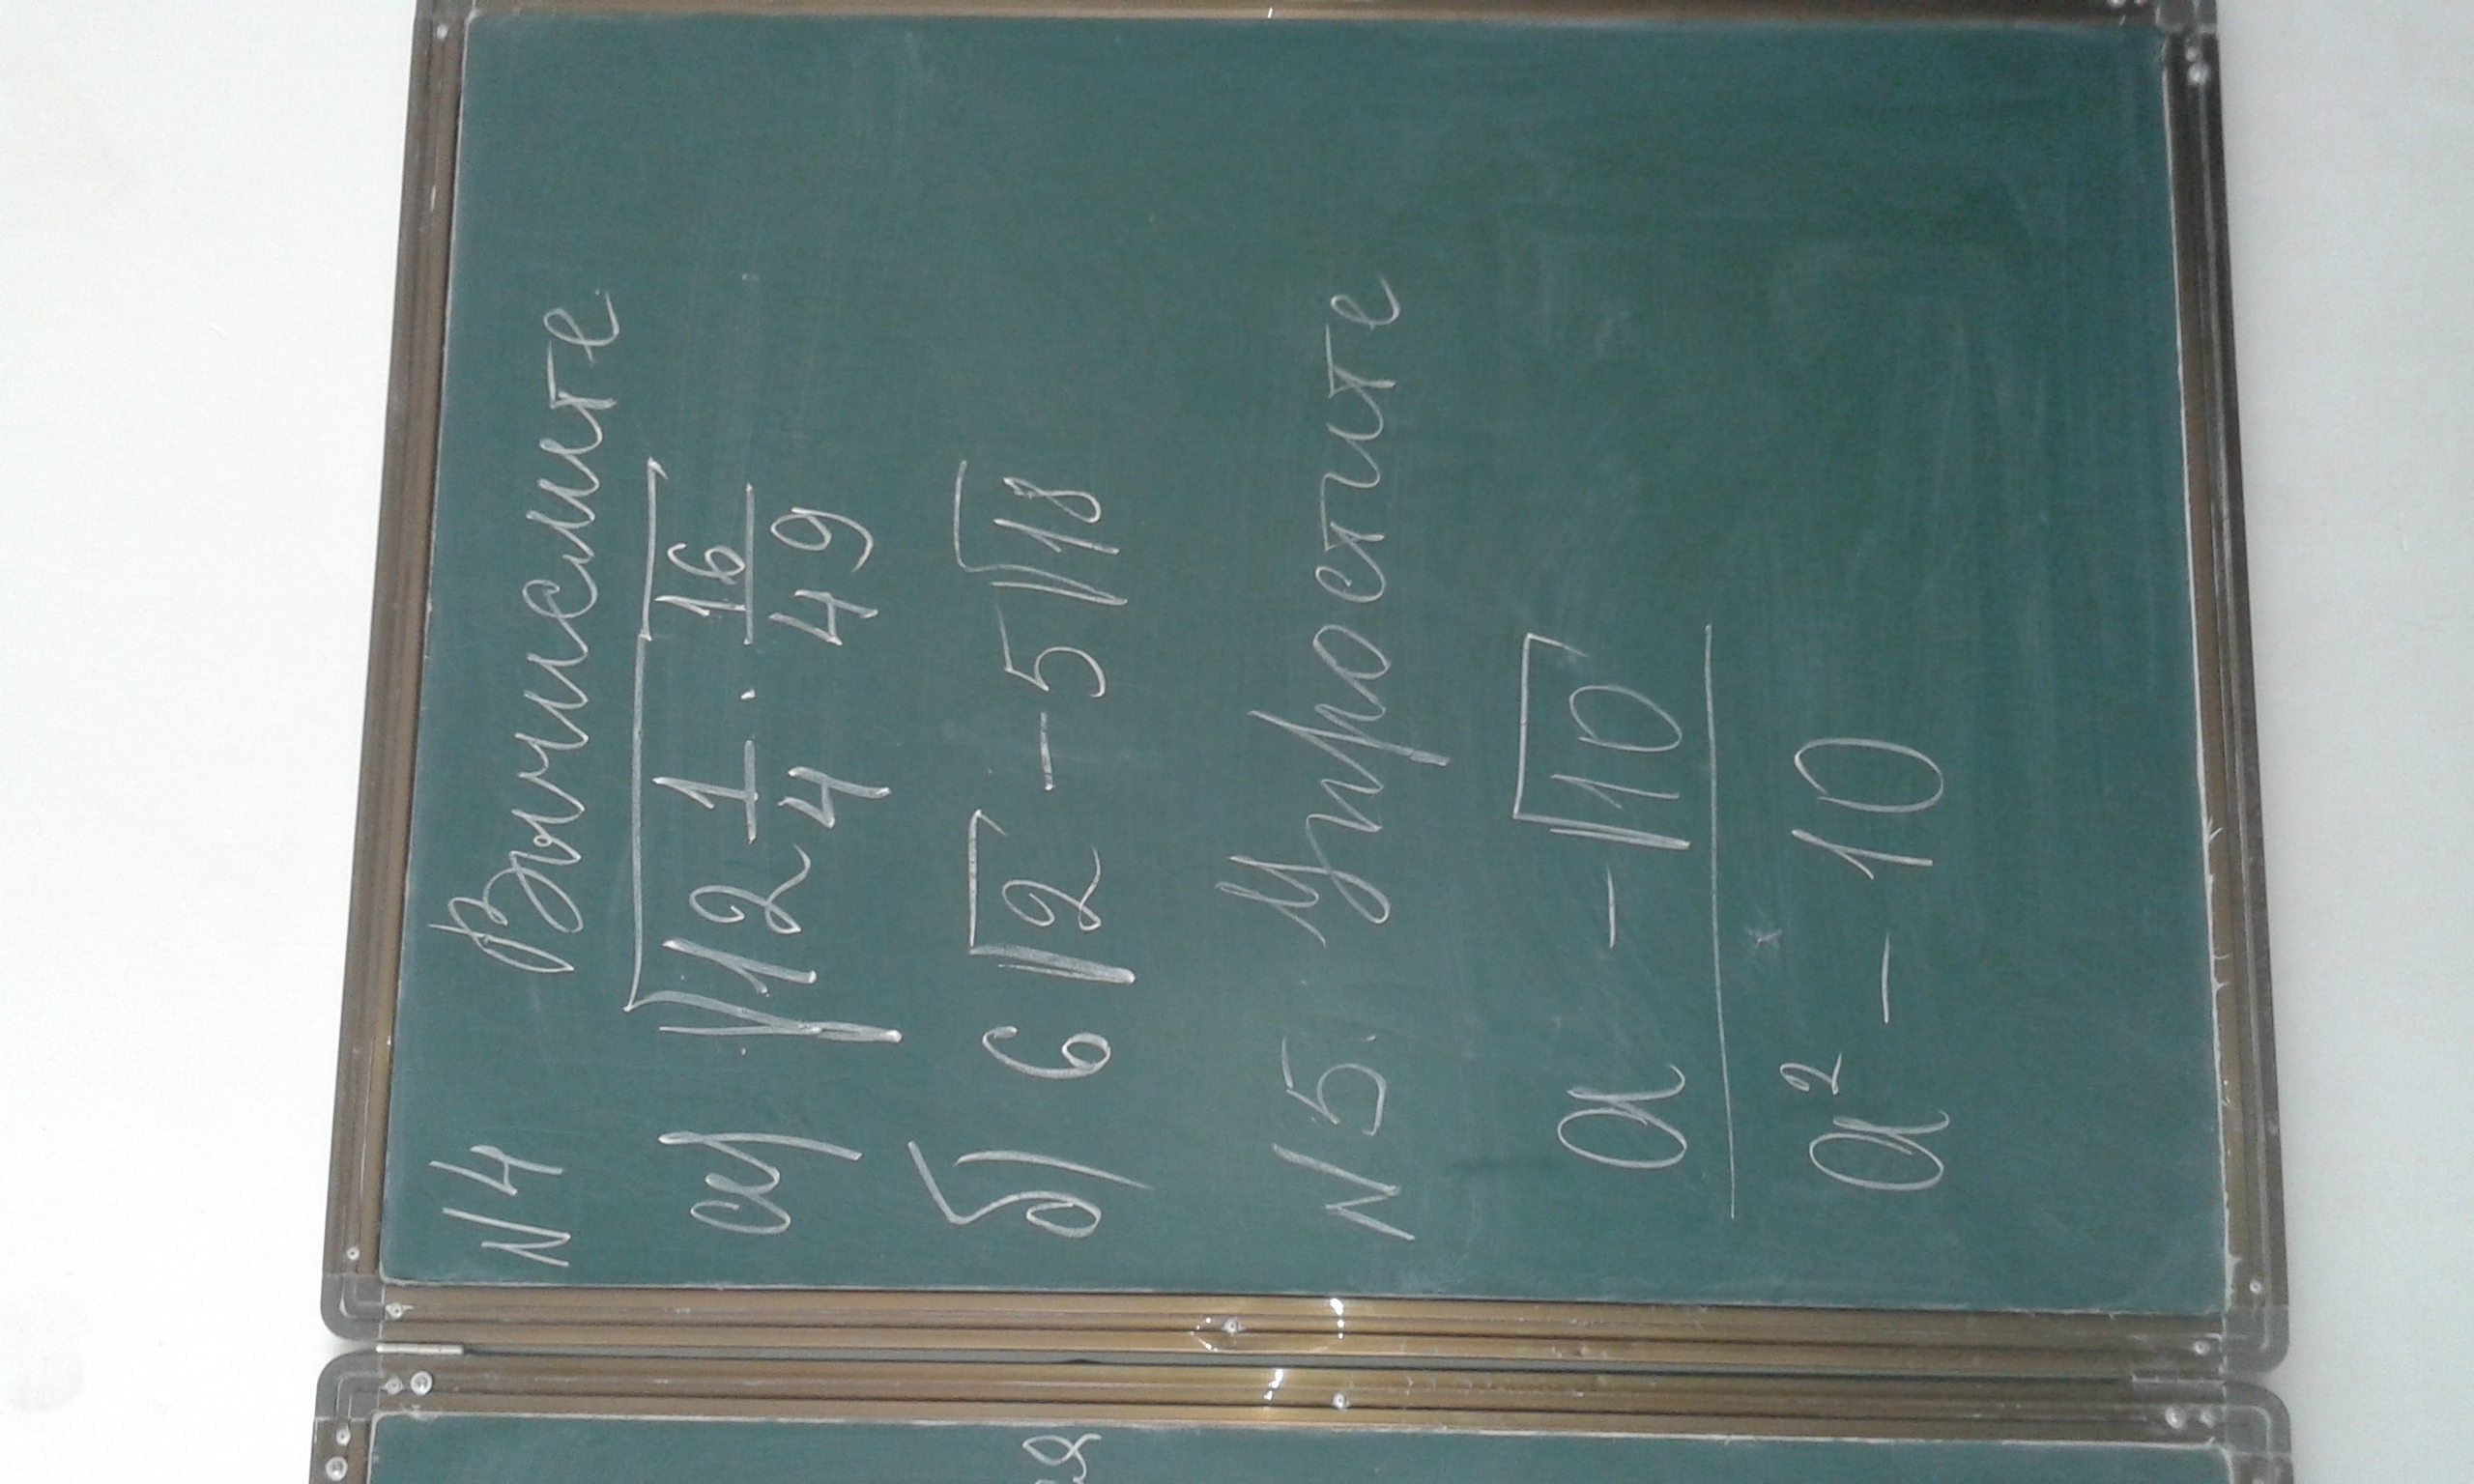 N 4 Вычислите
а) √(12 1/4 · 16/49)
б) 6√2 - 5√18
N 5. Упростите
a - √10
a² - 10
ия